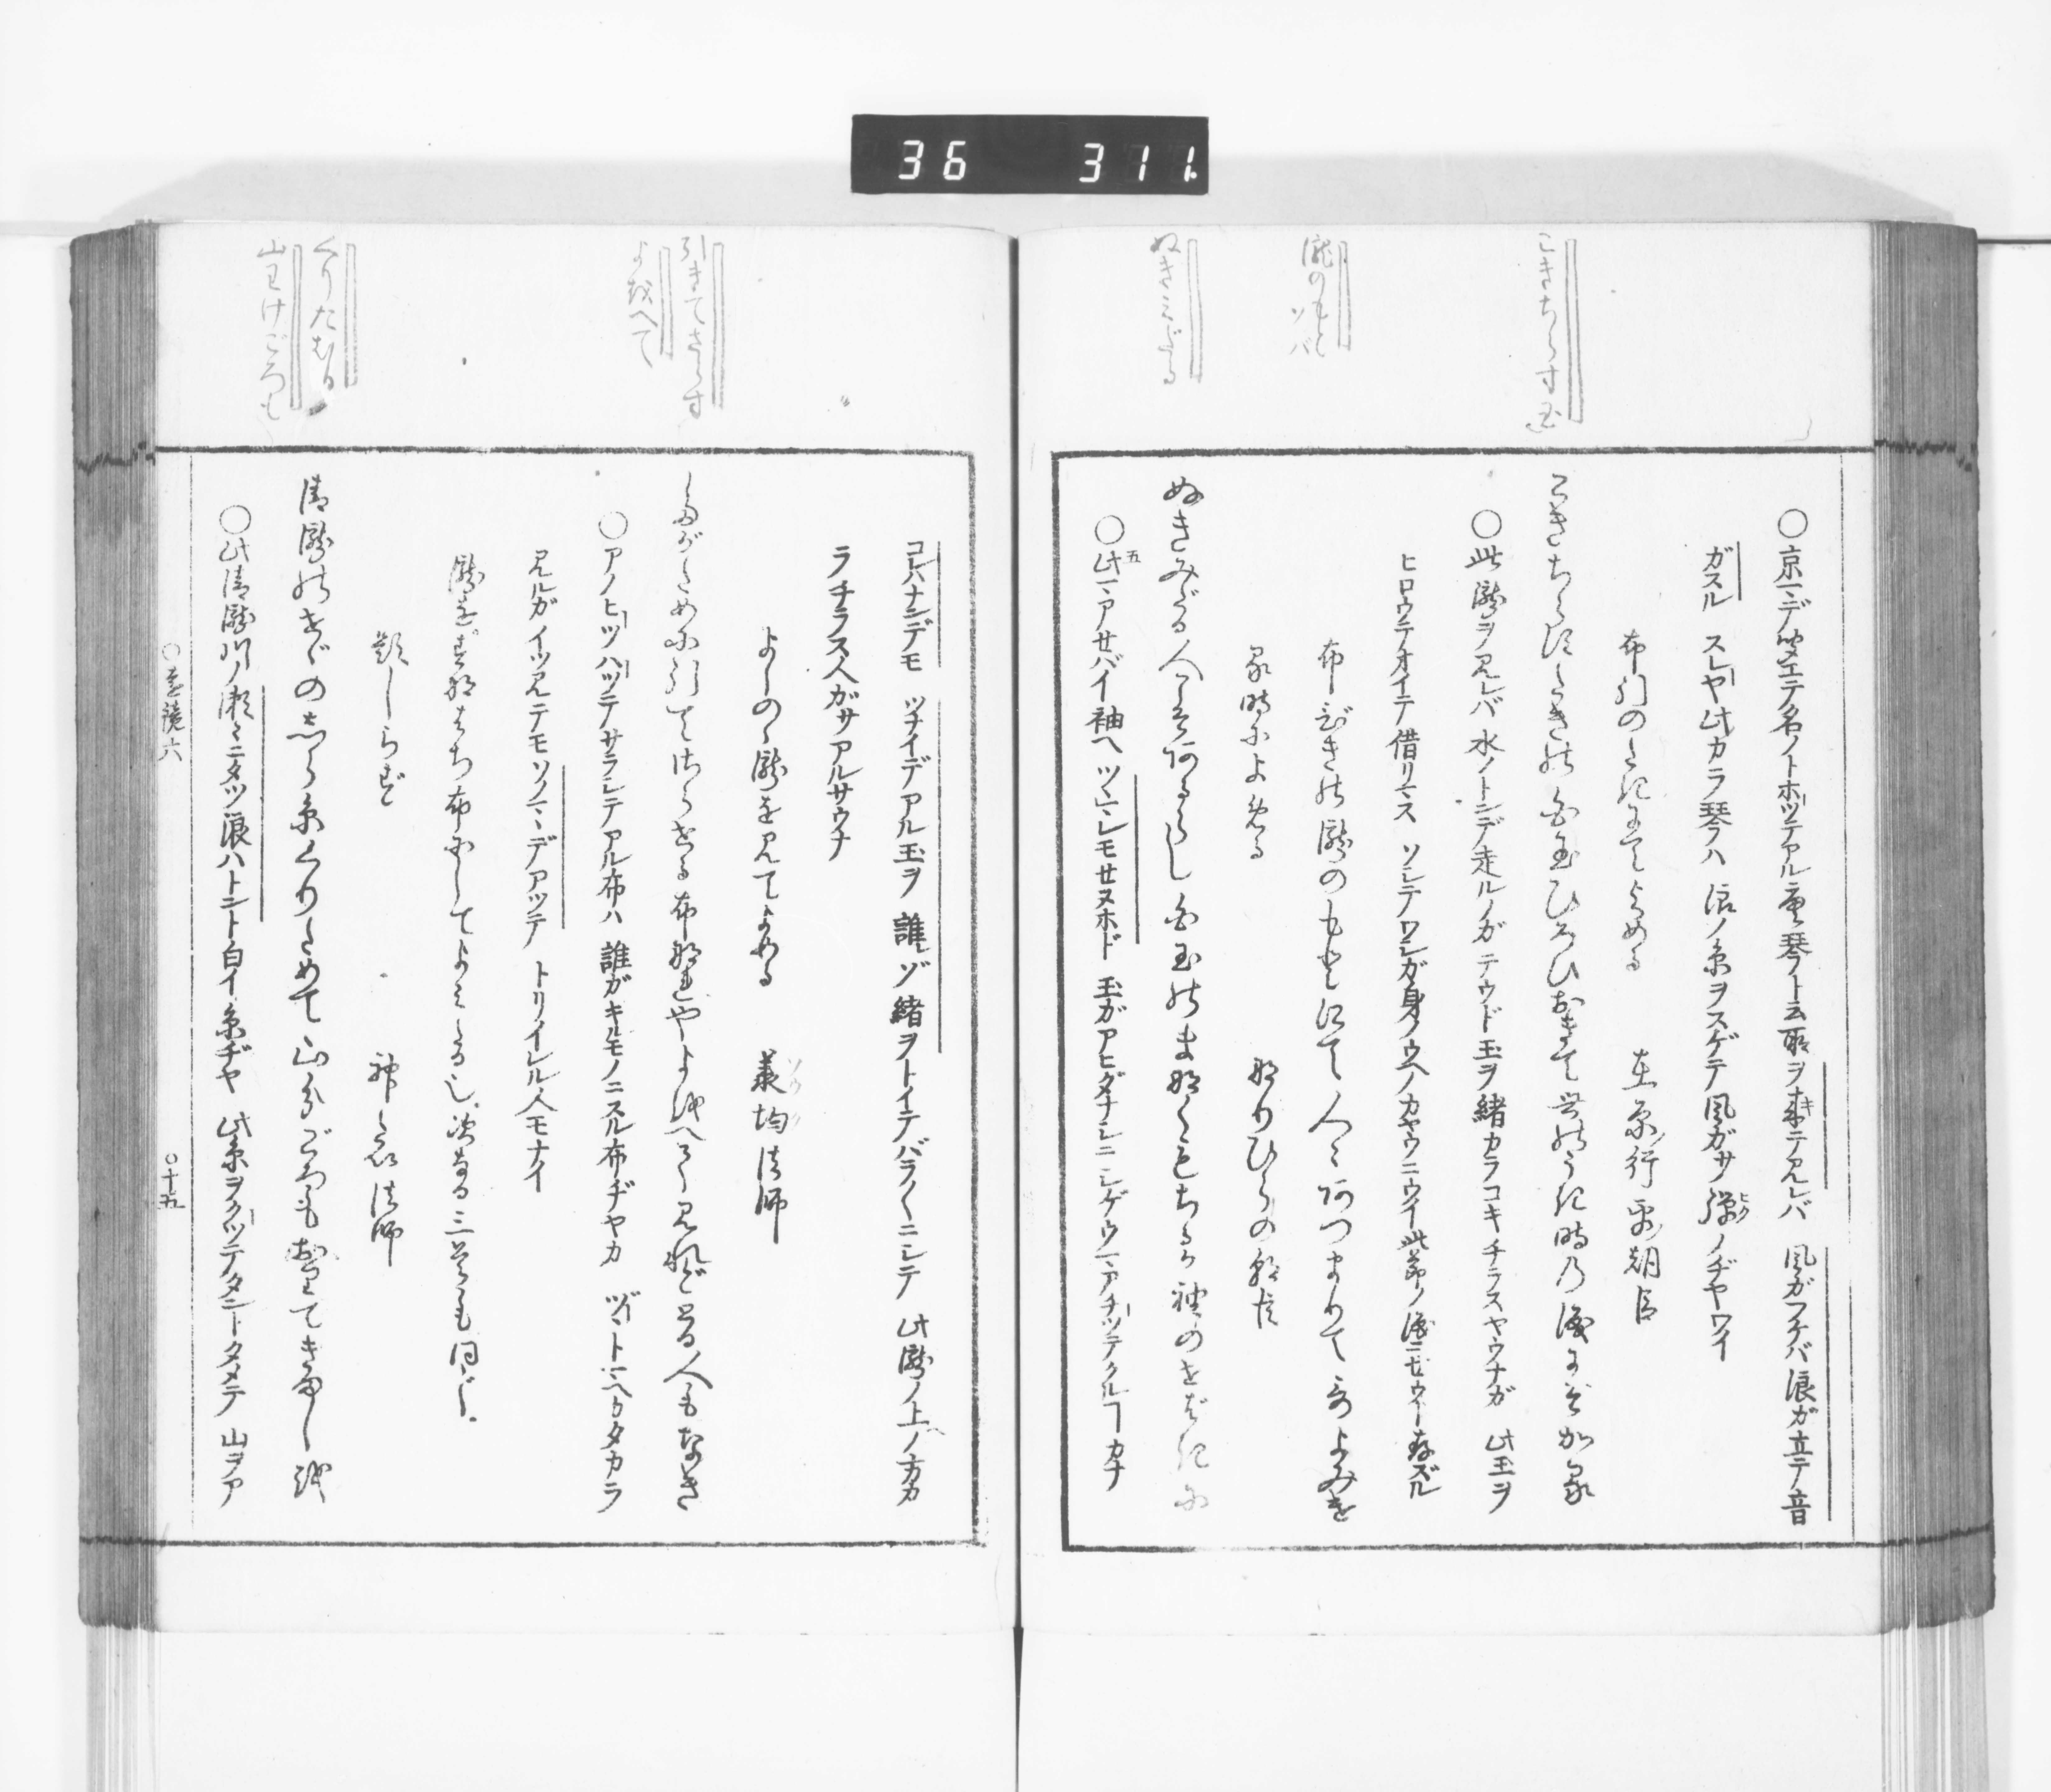 36 311
こきちらす玉
瀧のもと
ソバ
ぬきみだる
○京マデ聞エテ名ノトホツテアル唐琴ト云所ヲ来テ見レバ 風ガフケバ浪ガ立テ音
ガスル スレヤ此カラ琴ハ 浪ノ糸ヲスゲテ風ガサ弾ノヂヤワイ
布引のたきにてよめる 在原行平朝臣
こきちらすたきの白玉ひろひおきて世のうき時の涙にぞかる
○此瀧ヲ見レバ 水ノトンデ走ルノガ テウド玉ヲ緒カラコキチラスヤウナガ 此玉ヲ
ヒロウテオイテ借リマス ソシテワシガ身ノウヘノカヤウニウイ此節ノ涙ニセウト存ズル
布びきの瀧のもとにて人々あつまりて哥よみける
時によめる なりひらの朝臣
ぬきみだる人こそあるらし白玉のまなくもちるか袖のせばきに
○此五マアサバイ袖ヘ ツヽマレモセヌホド 玉ガアヒダナシニシゲウマアチツテクルヿカナ
コレハナンデモ ツナイデアル玉ヲ 誰ゾ緒ヲトイテバラ〱ニシテ 此瀧ノ上ノ方カ
ラチラス人ガサアルサウナ
よしのゝ瀧を見てよめる 承均法師
たがために引てさらせる布なれやよをへて見れどとる人もなき
○アノヒツハツテサラシテアル布ハ 誰ガキルモノニスル布ヂヤカ ヅヽトマヘカタカラ
見ルガ イツ見テモソノマヽデアツテ トリイレル人モナイ
瀧をすなはち布にしてよみたる也 次なる三首も同じ
題しらず 神たい法師
清瀧のせゞのしら糸くりためて山わけごろもおりてきましを
○此清瀧川ノ瀬々ニタツ浪ハトント白イ糸ヂヤ 此糸ヲクツテタントタメテ 山ヲア
引きてさらす
よをへて
くりためて
山わけごろも
○遠鏡六 ○十五